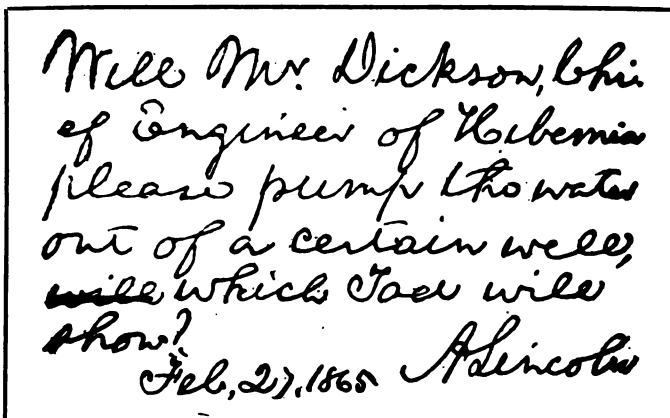 Will Mr. Dickson, Chi-
ef Engineer of Hibernia
please pump the water
out of a certain well,
which Tad will
show?
Feb, 27, 1865 A Lincoln